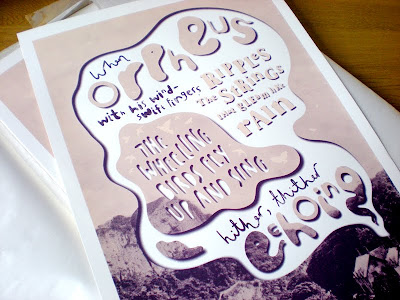 when
orpheus
with his wind-
swift fingers
RIPPLES
The STRINGS
that gleam like
rAIN
THE
WHEELING
BIRDS FLY
UP AND SING
hither, thither
echoing